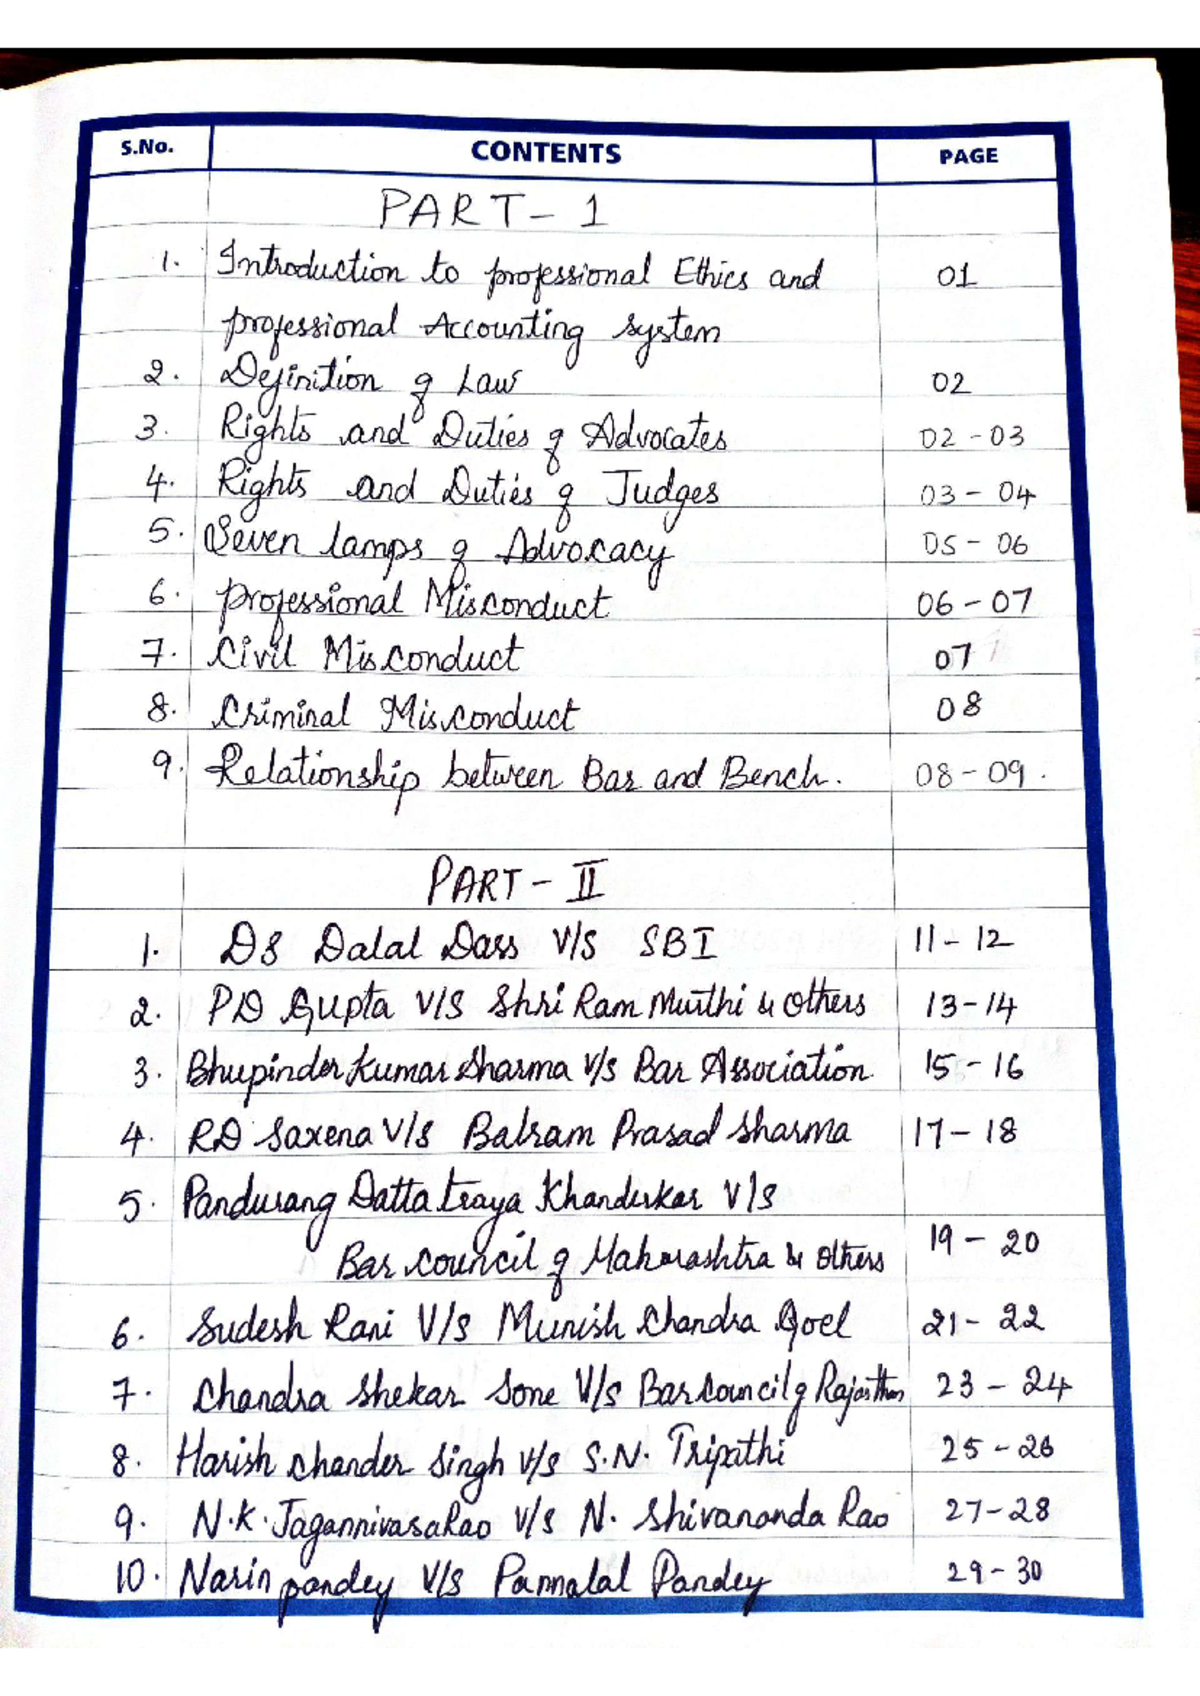 S.No. CONTENTS PAGE
PART - 1
1. Introduction to professional Ethics and 01
professional Accounting system
2. Definition of Law 02
3. Rights and Duties of Advocates 02 - 03
4. Rights and Duties of Judges 03 - 04
5. Seven lamps of Advocacy 05 - 06
6. professional Misconduct 06 - 07
7. Civil Misconduct 07
8. Criminal Misconduct 08
9. Relationship between Bar and Bench. 08 - 09.
PART - II
1. DS Dalal Dass V/S SBI 11 - 12
2. PD Gupta V/S Shri Ram Murthi & Others 13 - 14
3. Bhupinder Kumar Sharma V/s Bar Association 15 - 16
4. RD Saxena V/s Balram Prasad Sharma 17 - 18
5. Pandurang Dattatraya Khanderkar V/s
Bar Council of Maharashtra & Others 19 - 20
6. Sudesh Rani V/s Munish Chandra Goel 21 - 22
7. Chandra Shekar Sone V/s Bar Council of Rajasthan 23 - 24
8. Harish Chander Singh V/s S.N. Tripathi 25 - 26
9. N.K. JagannivasaRao V/s N. Shivananda Rao 27 - 28
10. Narin pandey V/s Pannalal Pandey 29 - 30